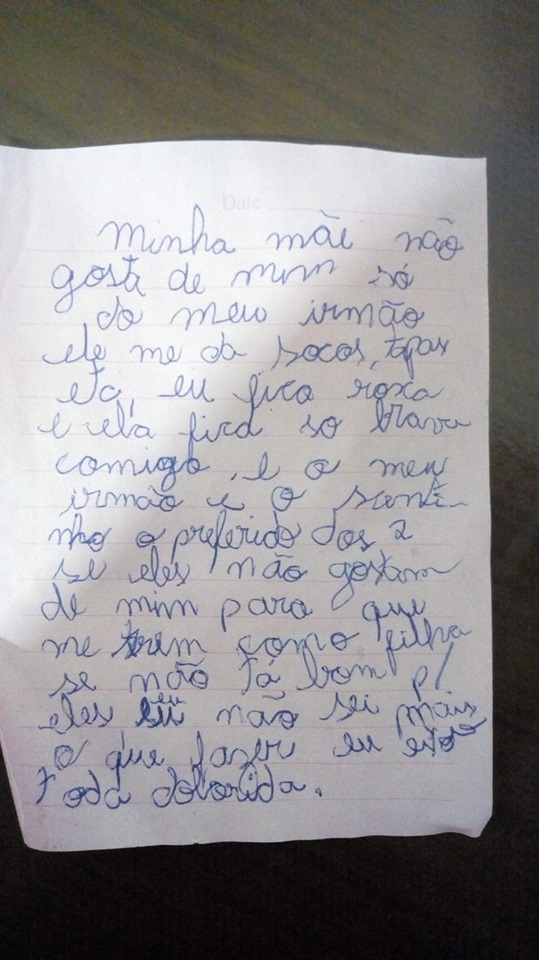 Date
Minha mãi não
gosta de mim só
do meu irmão
ele me da socos, tapas
etc, eu fico roxa
e ela fica so brava
comigo, e o meu
irmão e o santi-
nho o preferido dos 2
se eles não gostam
de mim para que
me trem como filha
se não tá bom p/
eles eu não sei mais
o que fazer eu esto
toda dolorida.